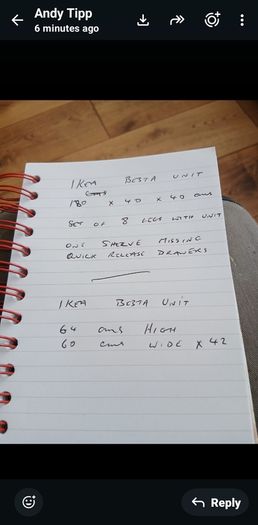 Andy Tipp
6 minutes ago
IKEA BESTA UNIT
180 x 40 x 40 cms
SET OF 8 LEGS WITH UNIT
ONE SHELVE MISSING
QUICK RELEASE DRAWERS
IKEA BESTA UNIT
64 cms HIGH
60 cms WIDE x 42
Reply